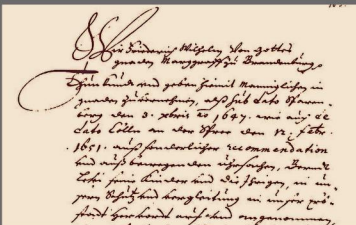 Wir Friderich Wilhelm von Gottes
gnaden Marggraff zu Brandenburg
Thun kundt und geben hiemit Männiglichen in
gnaden zuvernehmen, alß sub dato Sparen-
berg den 3. xbris ao 1647. wie auch de
dato Cölln an der Spree den 12. febr.
1651. auß sonderlicher recommendation
und auß bewegenden uhrsachen, Berendt
Levi seine Kinder und die Ihrigen, in un-
sern Schutz und vergleitung in unser
auff und angenommen,